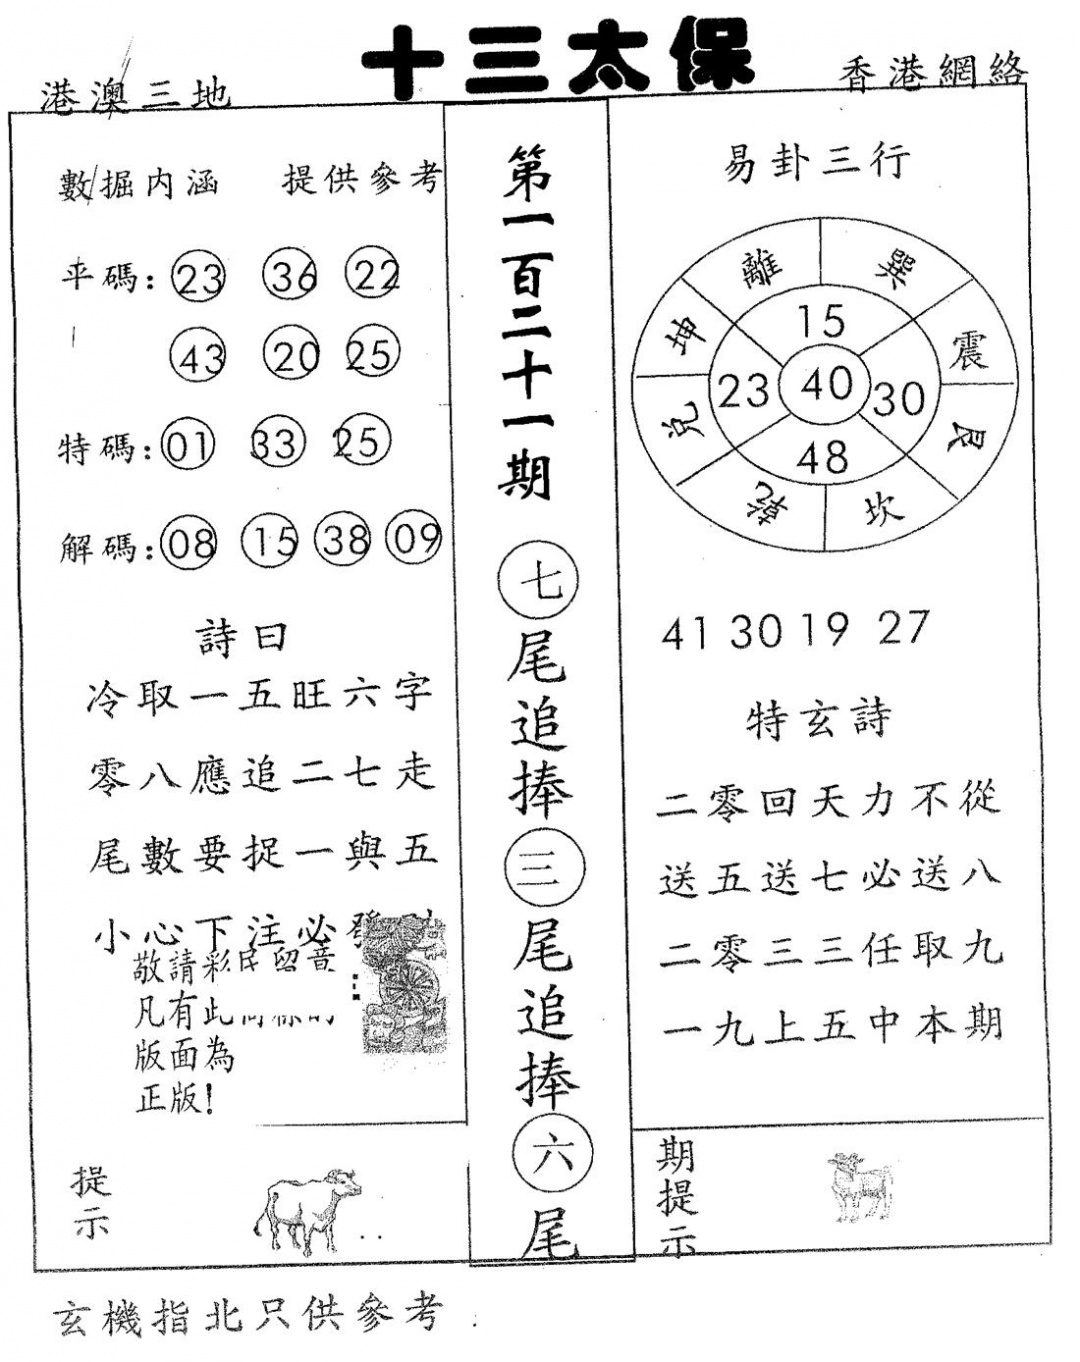 十三太保
港澳三地
香港網絡
數掘内涵 提供參考
平碼: 23 36 22
43 20 25
特碼: 01 33 25
解碼: 08 15 38 09
詩曰
冷取一五旺六字
零八應追二七走
尾數要捉一與五
小心下注必發
敬請彩民留意
凡有此
版面為
正版!
提示
第一百二十一期
七尾追捧三尾追捧六尾
易卦三行
離 巽
坤 震
兌 艮
乾 坎
15
23 40 30
48
41 30 19 27
特玄詩
二零回天力不從
送五送七必送八
二零三三任取九
一九上五中本期
期提示
玄機指北只供參考